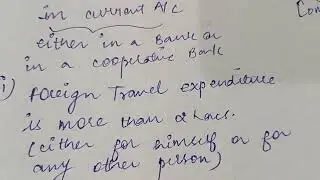 in current A/c
either in a Bank or
in a cooperative Bank
i) Foreign Travel expenditure
is more than 2 Lacs.
(either for himself or for
any other person)